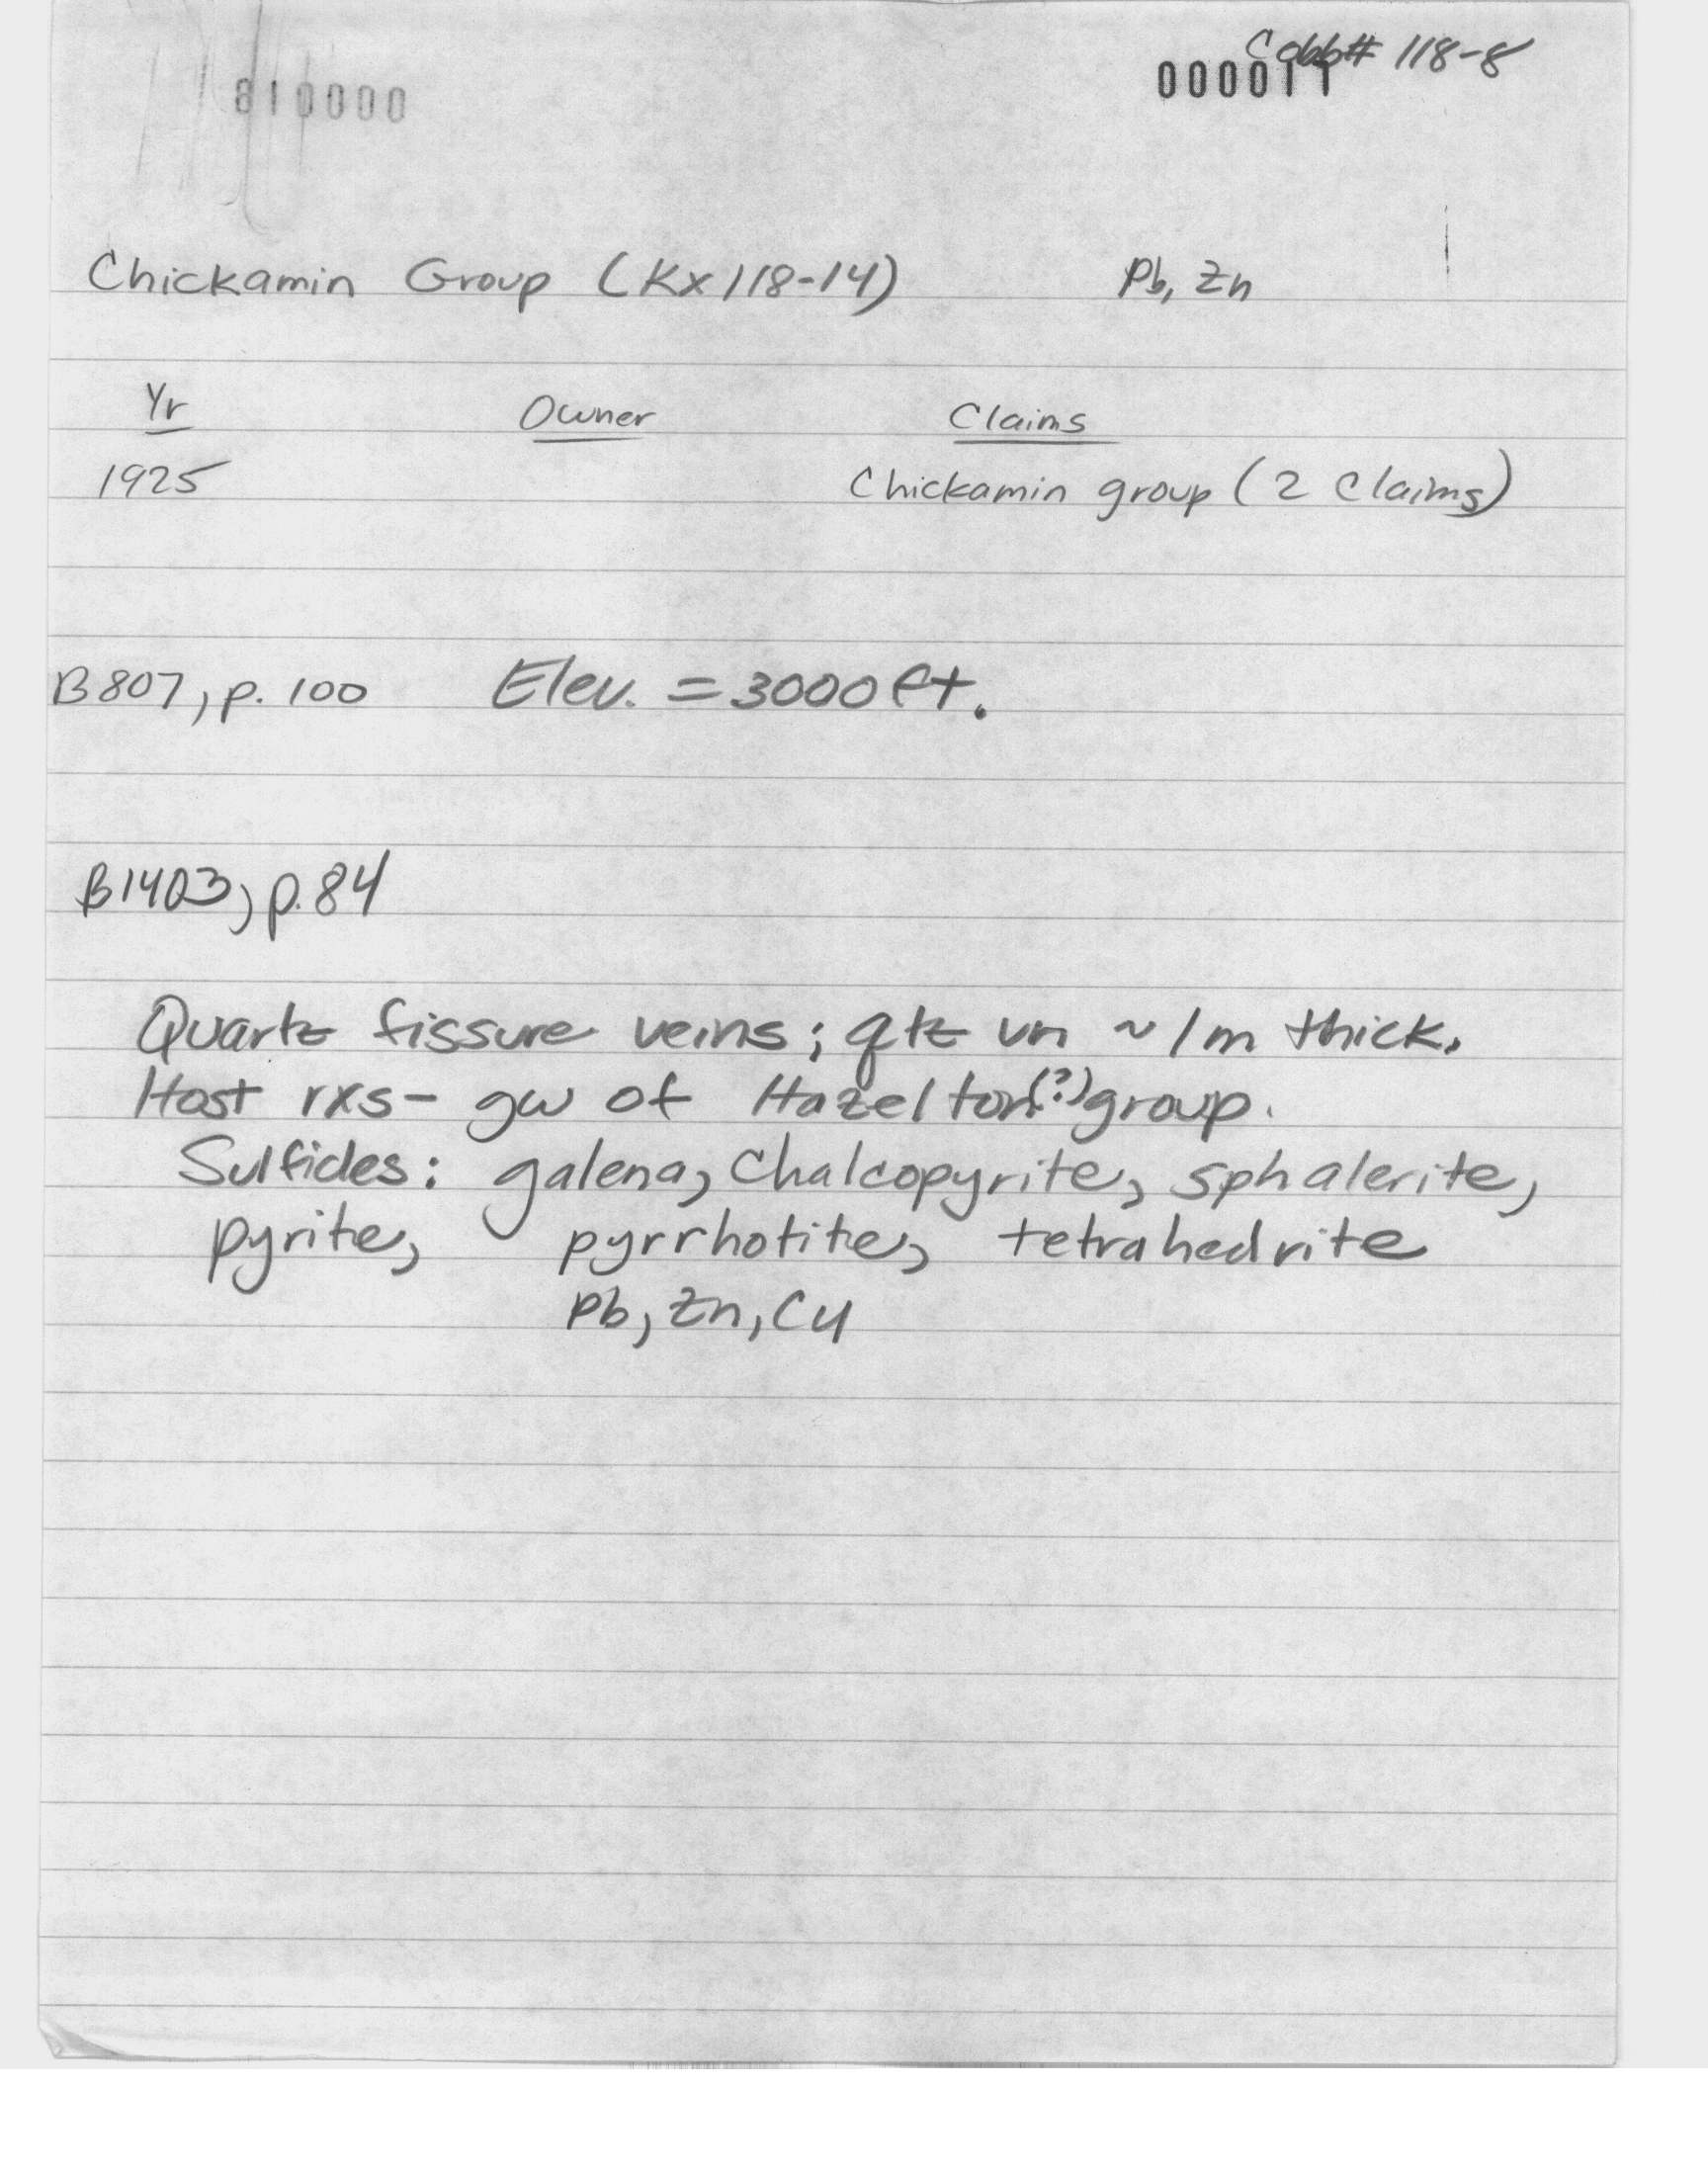 Cobb# 118-8
810000 000011
Chickamin Group (Kx118-14) Pb, Zn
Yr Owner Claims
1925 Chickamin group (2 Claims)
B807, p. 100 Elev. = 3000 ft.
B1403, p. 84
Quartz fissure veins; qtz vn ~ 1m thick.
Host rxs - gw of Hazelton(?) group.
Sulfides: galena, Chalcopyrite, sphalerite,
pyrite, pyrrhotite, tetrahedrite
Pb, Zn, Cu